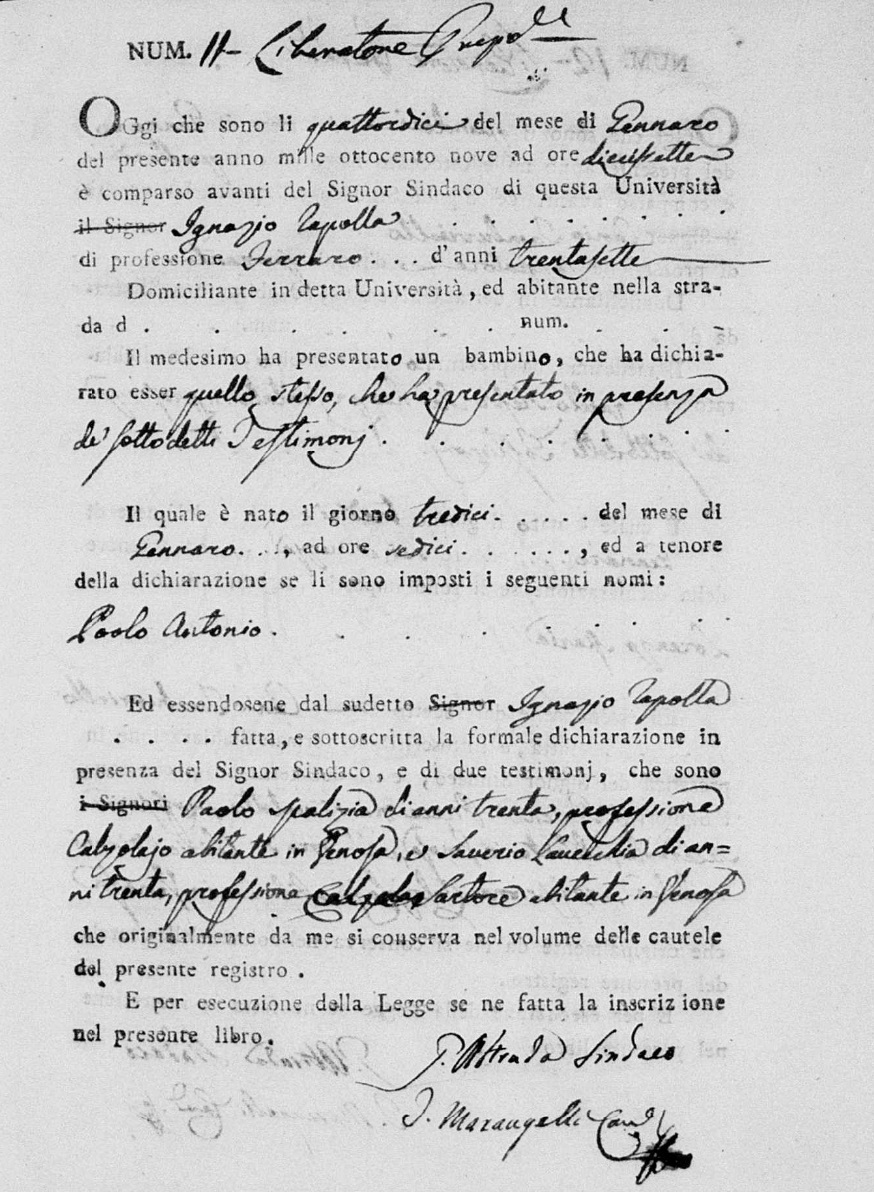 NUM. 11-
OGgi che sono li quattordici del mese di Gennaro
del presente anno mille ottocento nove ad ore diecisette
è comparso avanti del Signor Sindaco di questa Università
il Signor Ignazio Zapolla . . . . . . .
di professione Ferraro . . . d' anni trentasette
Domiciliante in detta Università, ed abitante nella stra-
da d . . . . . . . num. . . .
Il medesimo ha presentato un bambino, che ha dichia-
rato esser quello stesso, che ha presentato in presenza
de' sottodetti Testimonj. . . . . . .
Il quale è nato il giorno tredici . . . . . del mese di
Gennaro. . ., ad ore sedici . . . . . . , ed a tenore
della dichiarazione se li sono imposti i seguenti nomi:
Paolo Antonio . . . . . . .
Ed essendosene dal sudetto Signor Ignazio Zapolla
. . . . fatta, e sottoscritta la formale dichiarazione in
presenza del Signor Sindaco, e di due testimonj, che sono
i Signori Paolo Spalizia di anni trenta, professione
Calzolajo abitante in Ginosa, e Saverio Lavecchia di an=
ni trenta, professione Sartore abitante in Ginosa
che originalmente da me si conserva nel volume delle cautele
del presente registro.
E per esecuzione della Legge se ne fatta la inscrizione
nel presente libro.
Strada Sindaco
Marangelli